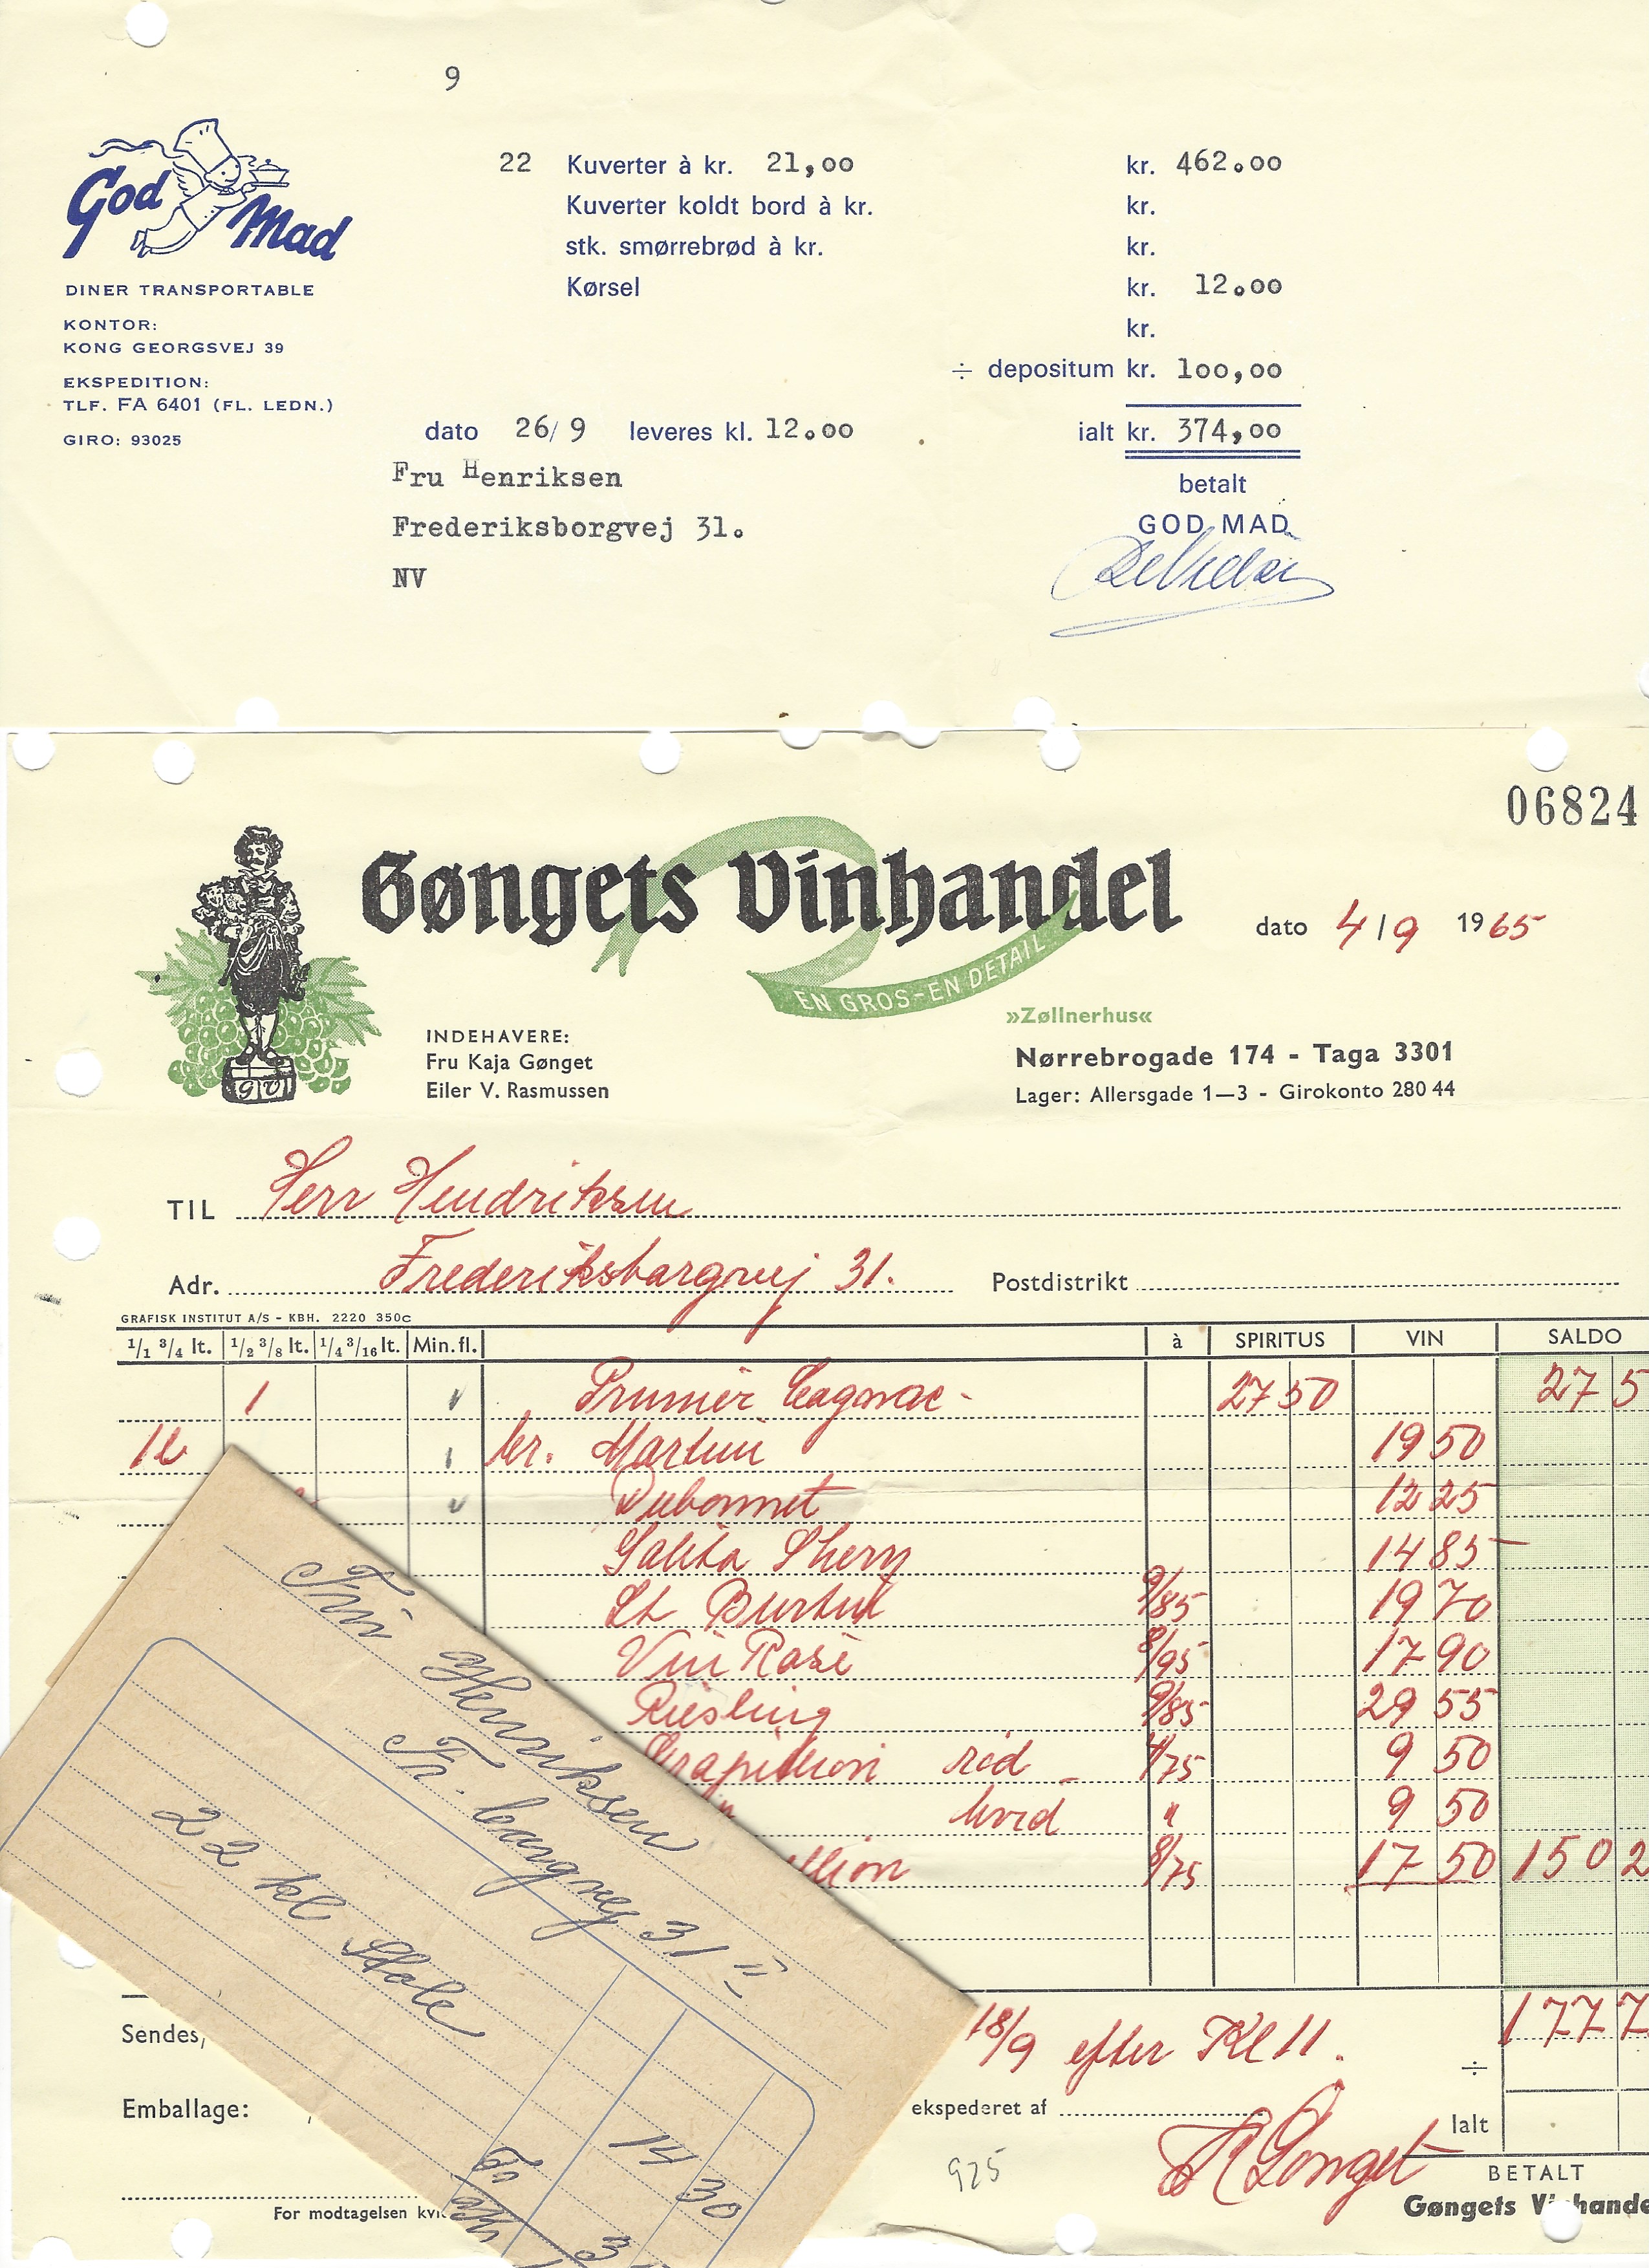 9
God Mad
DINER TRANSPORTABLE
KONTOR:
KONG GEORGSVEJ 39
EKSPEDITION:
TLF. FA 6401 (FL. LEDN.)
GIRO: 93025
22 Kuverter à kr. 21,00 kr. 462.00
Kuverter koldt bord à kr. kr.
stk. smørrebrød à kr. kr.
Kørsel kr. 12.00
kr.
÷ depositum kr. 100,00
dato 26/9 leveres kl. 12.00 ialt kr. 374,00
Fru Henriksen
Frederiksborgvej 31.
NV
betalt
GOD MAD
06824
Gøngets Vinhandel
EN GROS-EN DETAIL
dato 4/9 1965
»Zøllnerhus«
INDEHAVERE:
Fru Kaja Gønget
Eiler V. Rasmussen
Nørrebrogade 174 - Taga 3301
Lager: Allersgade 1—3 - Girokonto 280 44
GV
TIL Herr Hendriksen
Adr. Frederiksborgvej 31. Postdistrikt
GRAFISK INSTITUT A/S - KBH. 2220 350c
1/1 3/4 lt. 1/2 3/8 lt. 1/4 3/16 lt. Min.fl. à SPIRITUS VIN SALDO
1 Prunier Cognac - 27 50 27 5
kr. Martini 19 50
Dubonnet 12 25
Sherry 14 85
St 9/85 19 70
Vin Rosé 8/95 17 90
Riesling 9/85 29 55
rød 4/75 9 50
" hvid " 9 50
8/75 17 50 150 2
177 7
Sendes, 18/9 efter Kl 11. ÷
Emballage: ekspederet af Gønget Ialt
925
BETALT
Gøngets Vinhande
For modtagelsen kvi
Fru Henriksen
Fr. borgvej 31
22 kl Stole
14 30
3